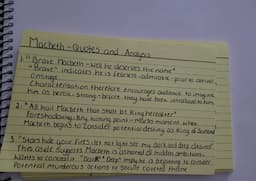 Macbeth - Quotes and Analysis
1. "Brave Macbeth - well he deserves the name"
"Brave" indicates he is fearless - admirable -
onstage.
Characterisation therefore encourages audience to imagine
him as heroic - strong - before they have been introduced to him.
2. "All hail Macbeth that shalt be King hereafter"
Foreshadowing. Key turning point - marks moment when
Macbeth begins to consider potential destiny as King of Scotland
3. "Stars hide your fires let not light see my dark and deep desires".
This quote suggests Macbeth is ashamed of hidden ambition.
Wants to conceal it. "Dark" "Deep" maybe is beginning to consider
Potential murderous actions to secure coveted throne